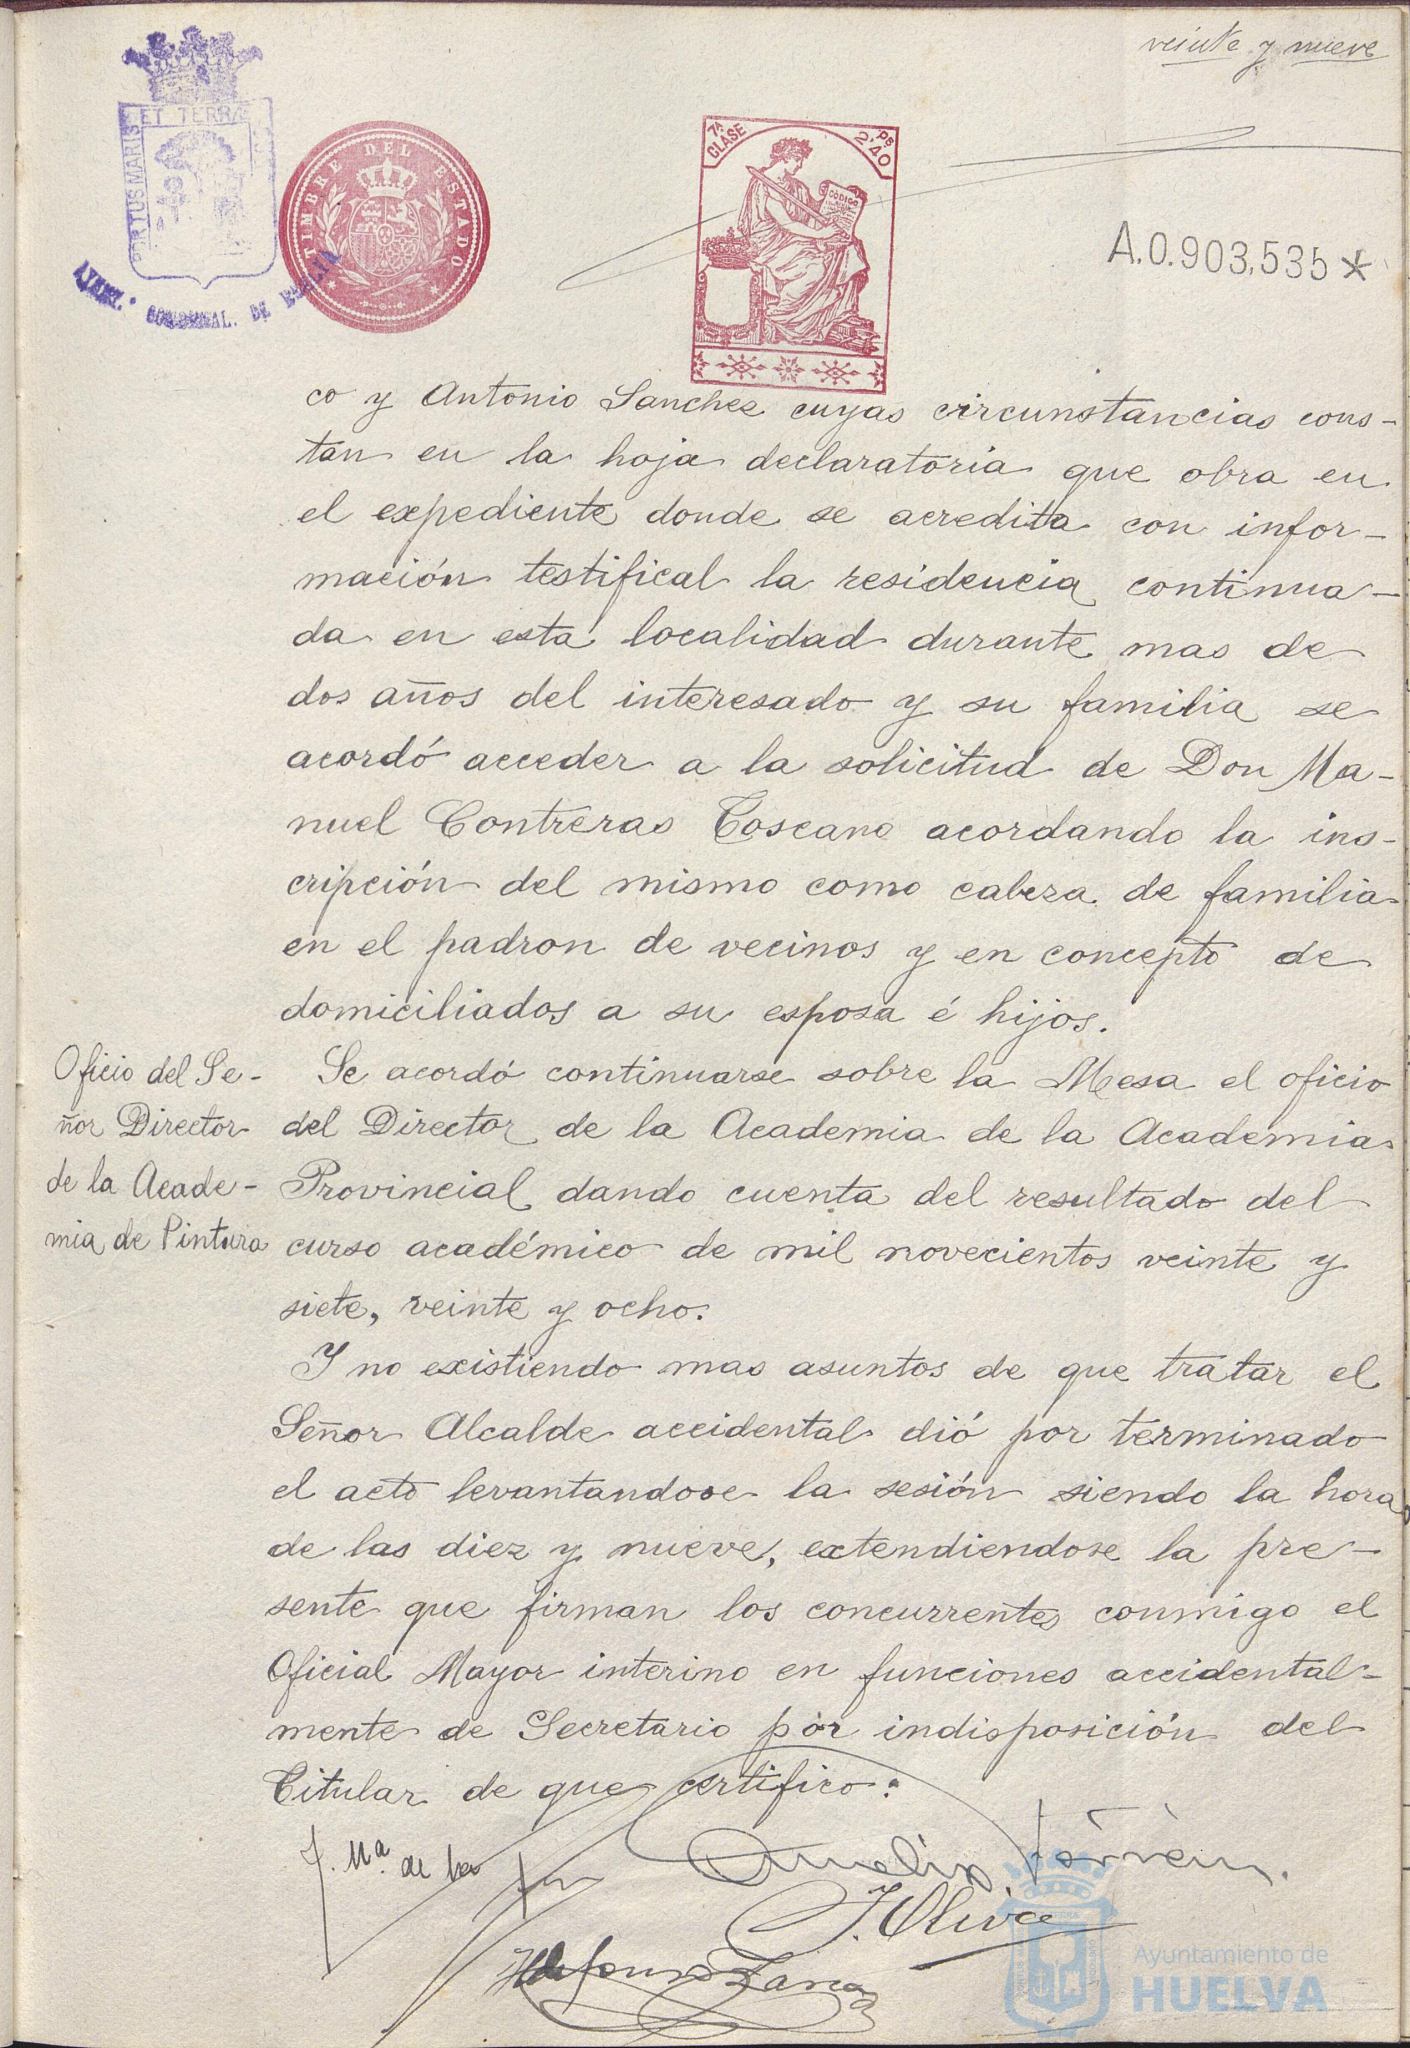 veinte y nueve
PORTUS MARIS ET TERRÆ
TIMBRE DEL ESTADO
7ª CLASE
2'40 Ps
CÓDIGO
A.0.903,535*
DE
co y Antonio Sanchez cuyas circunstancias cons-
tan en la hoja declaratoria que obra en
el expediente donde se acredita con infor-
mación testifical la residencia continua-
da en esta localidad durante mas de
dos años del interesado y su familia se
acordó acceder a la solicitud de Don Ma-
nuel Contreras Toscano acordando la ins-
cripción del mismo como cabeza de familia
en el padron de vecinos y en concepto de
domiciliados a su esposa é hijos.
Oficio del Se-
ñor Director
de la Acade-
mia de Pintura
Se acordó continuarse sobre la Mesa el oficio
del Director de la Academia de la Academia
Provincial dando cuenta del resultado del
curso académico de mil novecientos veinte y
siete, veinte y ocho.
Y no existiendo mas asuntos de que tratar el
Señor Alcalde accidental dió por terminado
el acto levantandose la sesión siendo la hora
de las diez y nueve, extendiendose la pre-
sente que firman los concurrentes conmigo el
Oficial Mayor interino en funciones accidental-
mente de Secretario por indisposición del
Titular de que certifico:
J. Mª. de
J. Oliva
Ildefonso
Ayuntamiento de
HUELVA